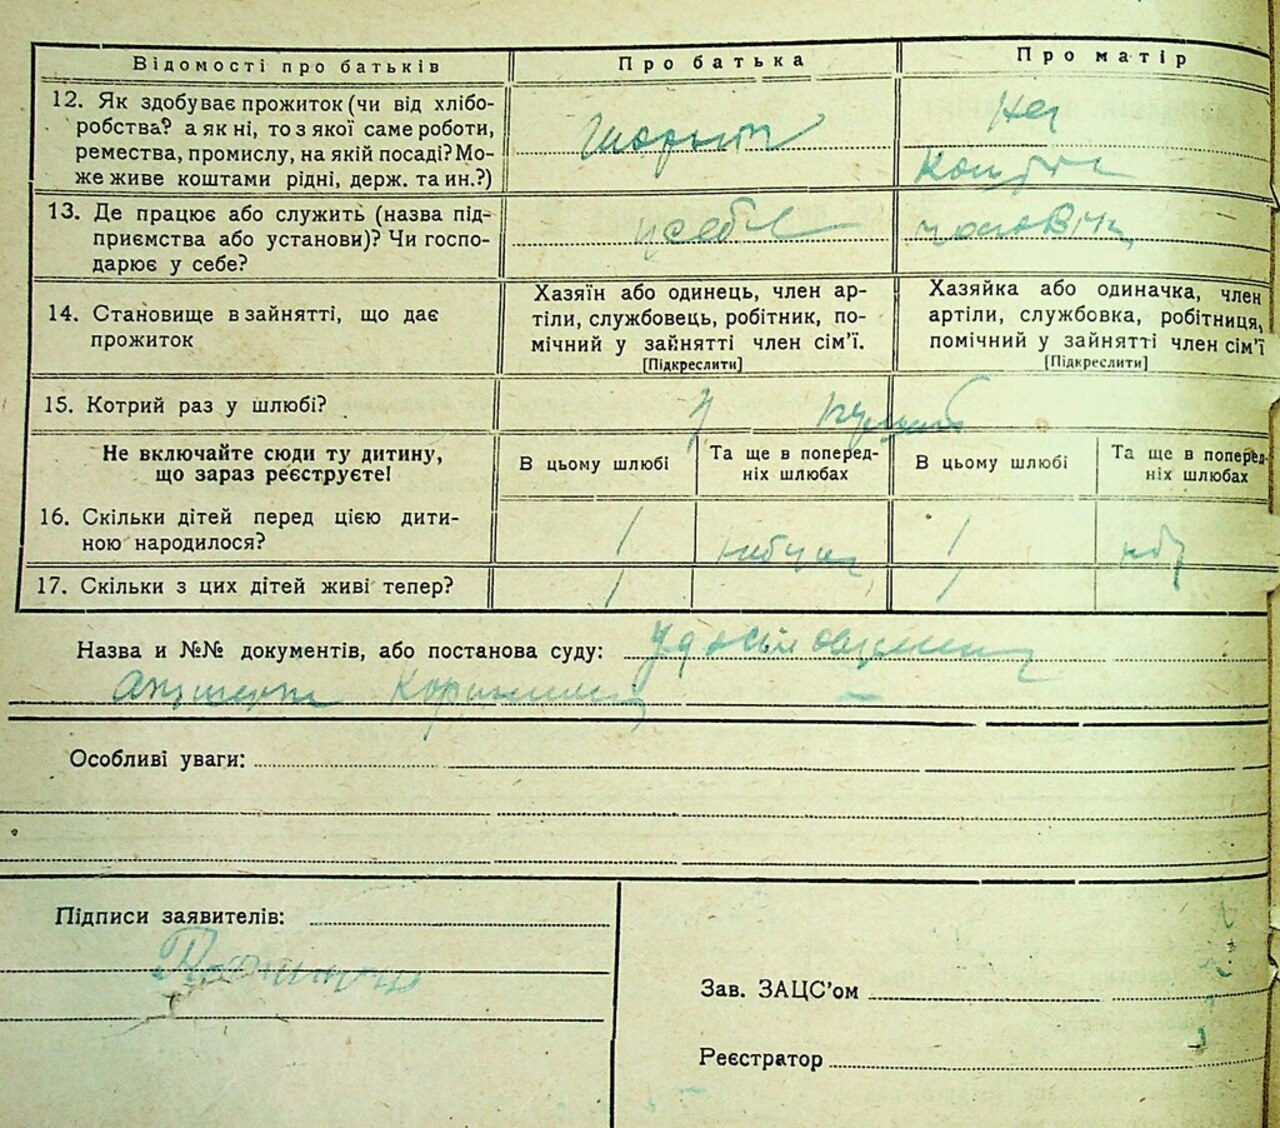 Відомості про батьків
Про батька
Про матір
12. Як здобуває прожиток (чи від хлібо-
робства? а як ні, то з якої саме роботи,
ремества, промислу, на якій посаді? Мо-
же живе коштами рідні, держ. та ин.?)
13. Де працює або служить (назва під-
приємства або установи)? Чи госпо-
дарює у себе?
у себе
14. Становище в зайнятті, що дає
прожиток
Хазяїн або одинець, член ар-
тіли, службовець, робітник, по-
мічний у зайнятті член сім'ї.
[Підкреслити]
Хазяйка або одиначка, член
артіли, службовка, робітниця,
помічний у зайнятті член сім'ї
[Підкреслити]
15. Котрий раз у шлюбі?
Не включайте сюди ту дитину,
що зараз реєструєте!
В цьому шлюбі
Та ще в поперед-
ніх шлюбах
В цьому шлюбі
Та ще в поперед-
ніх шлюбах
16. Скільки дітей перед цією дити-
ною народилося?
1
1
17. Скільки з цих дітей живі тепер?
1
1
Назва и №№ документів, або постанова суду:
Особливі уваги:
Підписи заявителів:
Зав. ЗАЦС'ом
Реєстратор